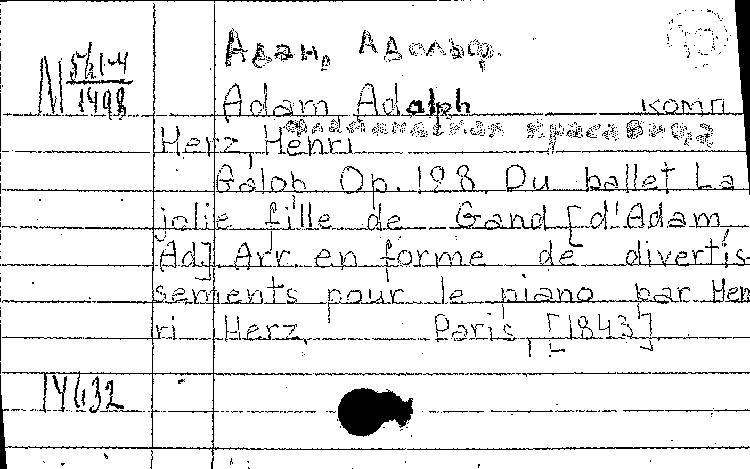 Адан, Адольф.
10
М 5/21-4
1498
Adam Adolph комп
Фламандская красавица
Herz, Henri
Galop. Op. 128. Du ballet La
jolie fille de Gand [d'Adam,
Ad.] Arr. en forme de divertis-
sements pour le piano par Hen-
ri Herz. Paris, [1843].
14632